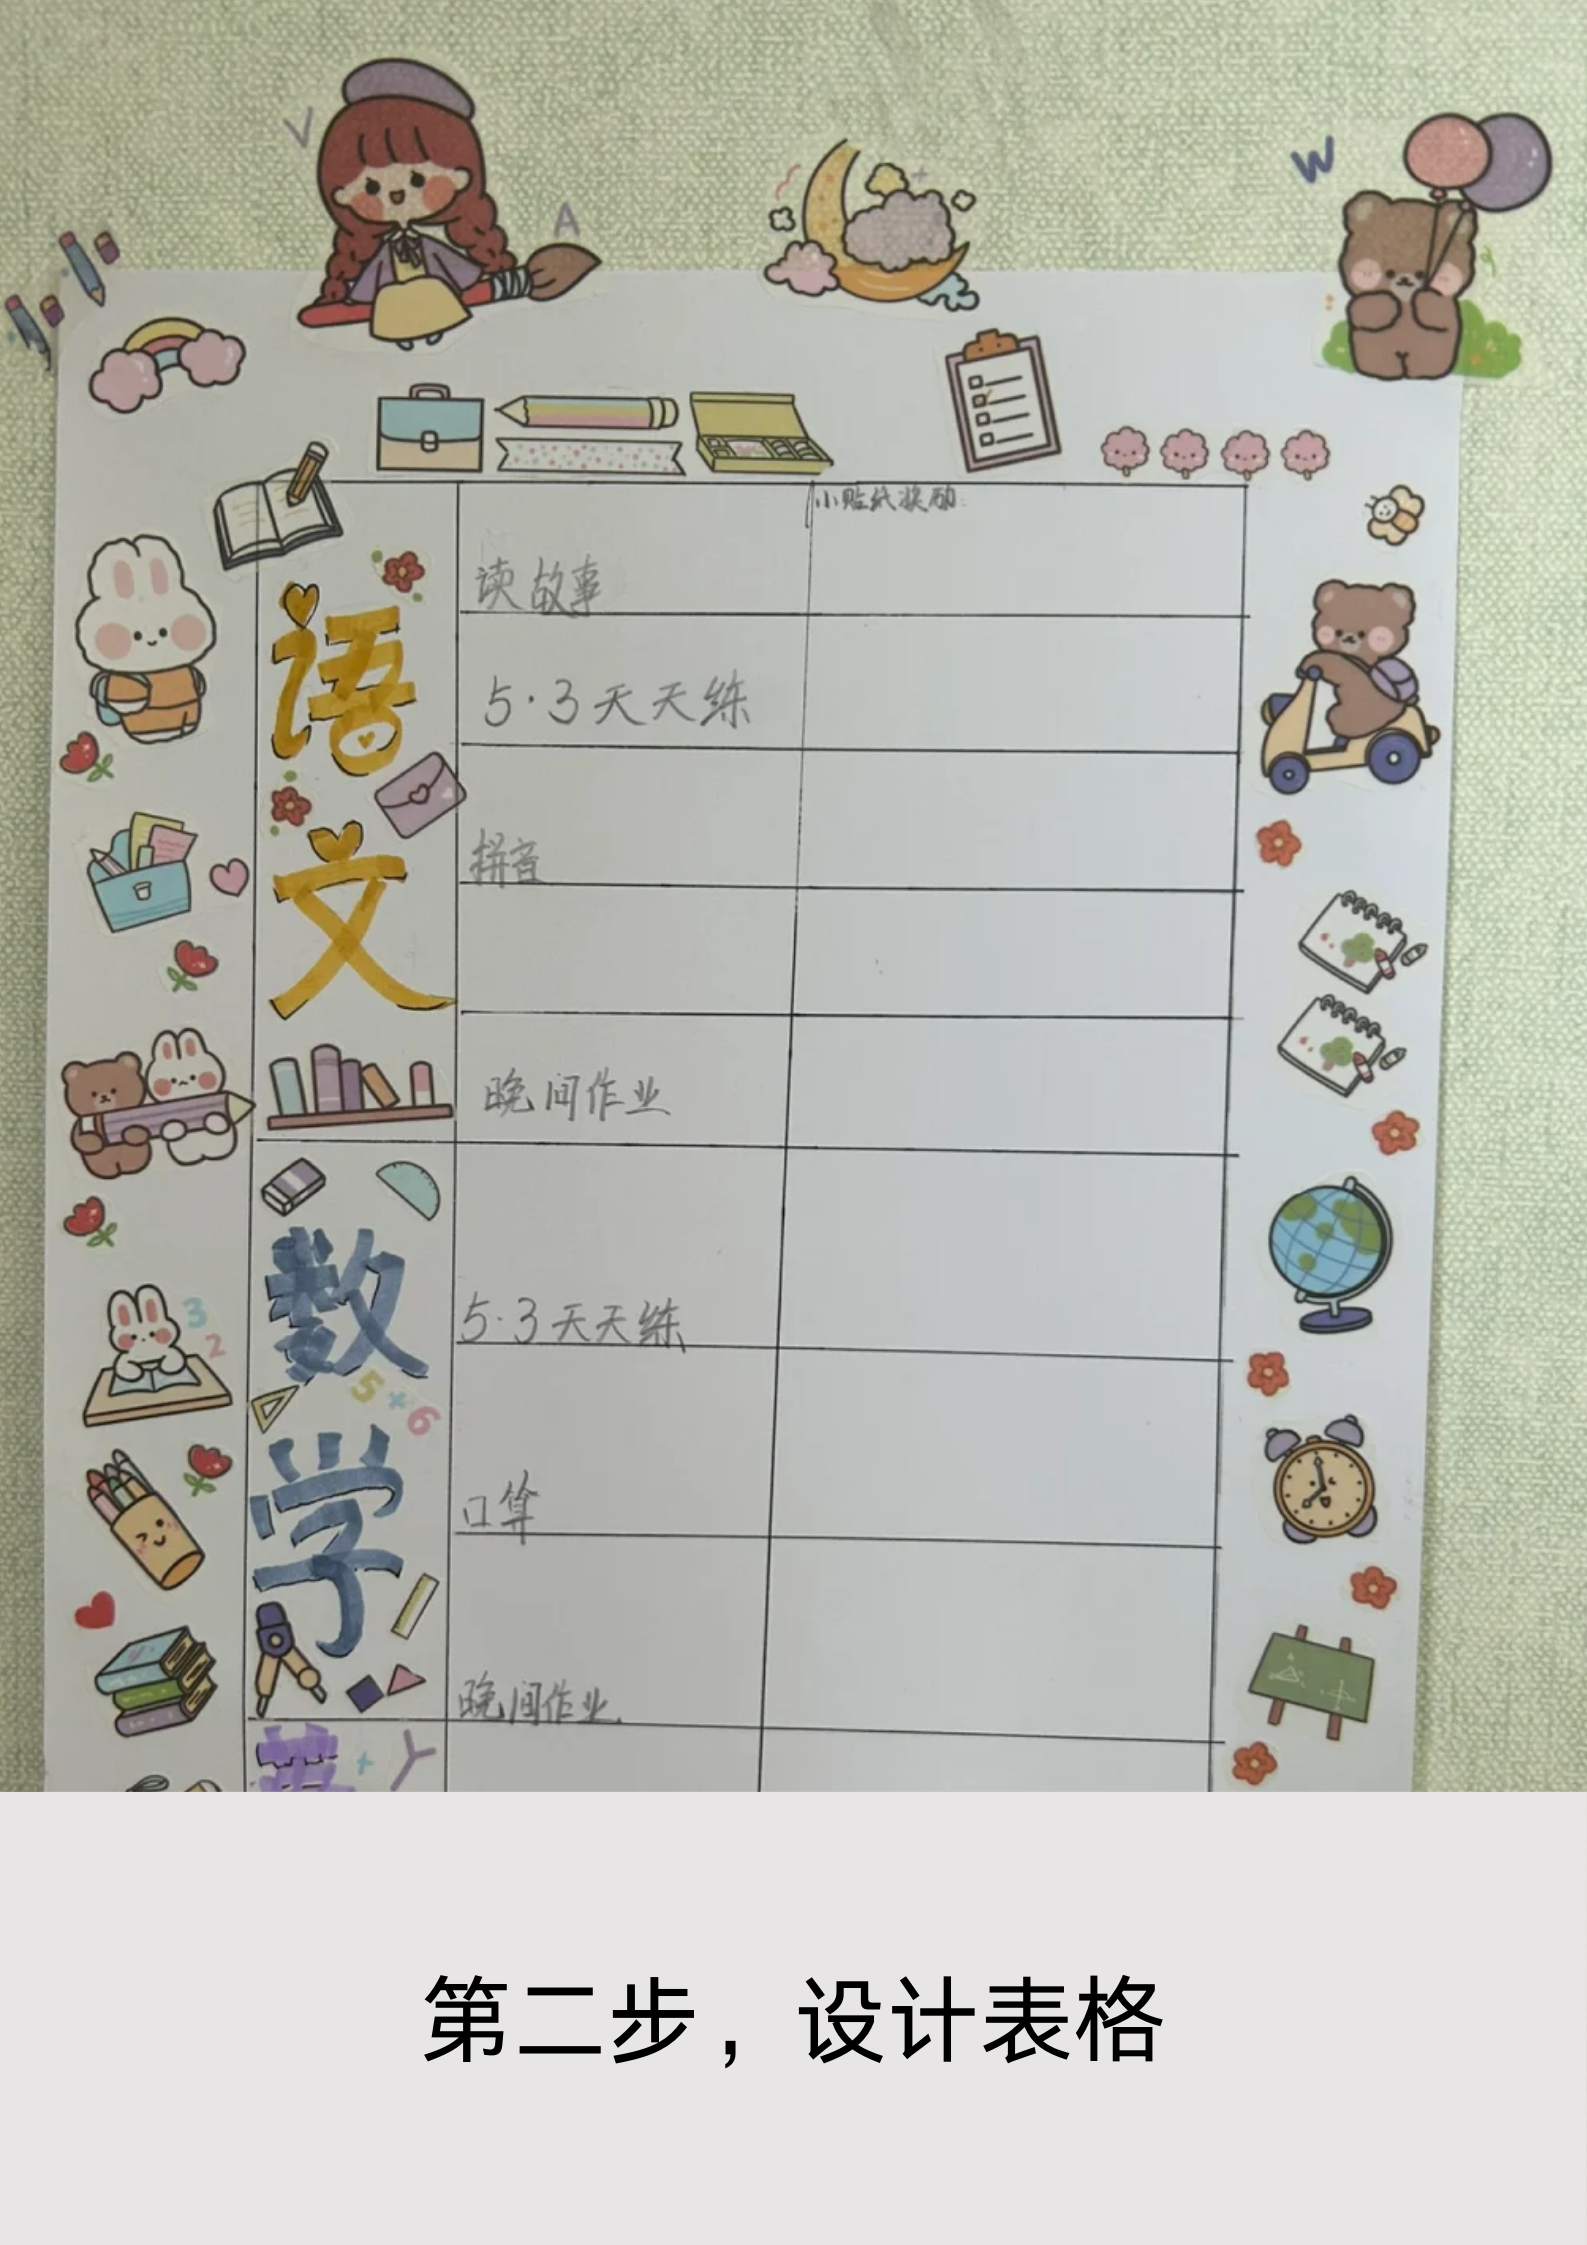 V
A
W
小贴纸奖励:
读故事
5·3天天练
语
文
拼音
晚间作业
数
5·3天天练
3
2
5×6
学
口算
晚间作业
英
Y
第二步，设计表格